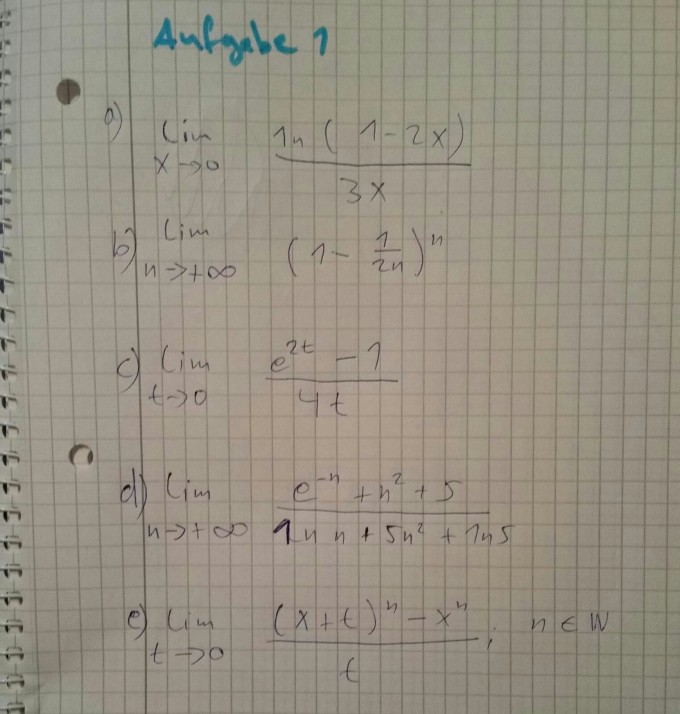 Aufgabe 1
a) lim x→0 ln(1-2x) / 3x
b) lim n→+∞ (1 - 1/2n)^n
c) lim t→0 e^2t - 1 / 4t
d) lim n→+∞ e^-n + n^2 + 5 / ln n + 5n^2 + ln5
e) lim t→0 (x+t)^n - x^n / t ; n ∈ ℕ